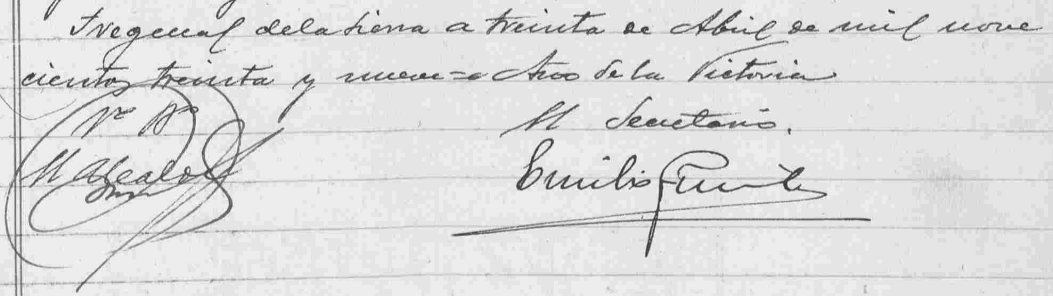 Fregenal de la Sierra a treinta de Abril de mil nove
cientos treinta y nueve = Año de la Victoria
Vº Bº
El Secretario.
El Alcalde
Emilio